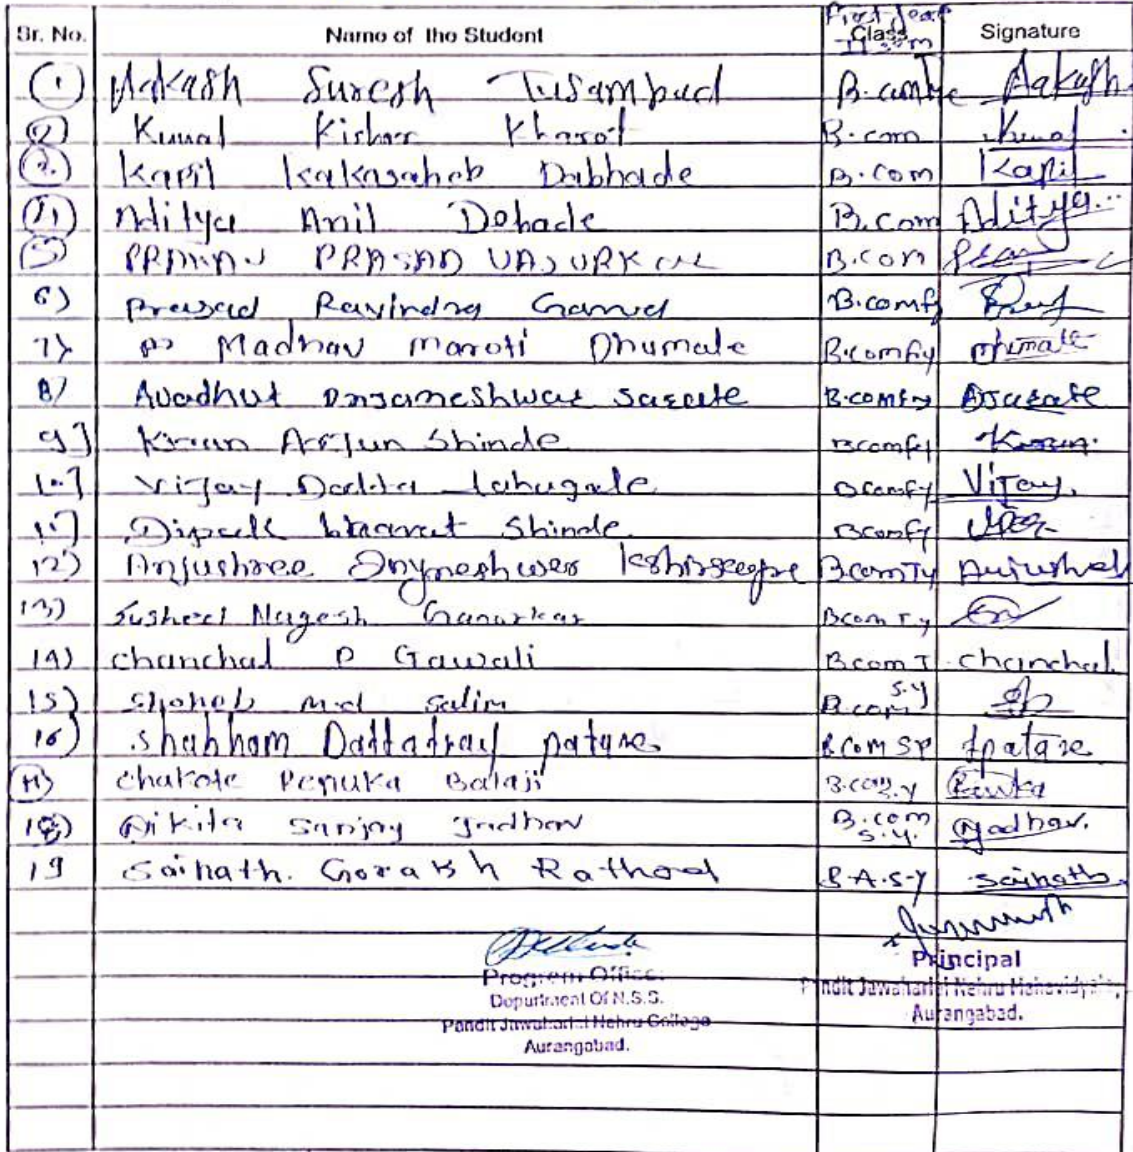 Sr. No. Name of the Student Class Signature
First year
(1) Aakash Suresh Tusambad B.com Aakash
(2) Kunal Kishor Kharat B.com Kunal
(3) Kapil Kakasaheb Dabhade B.com Kapil
(4) Aditya Anil Dehade B.com Aditya
(5) PRANAV PRASAD B.com
6) Prasad Ravindra B.comfy
7) Madhav maroti Dhumale B.comfiy Dhumale
8) Avadhut Dnyameshwar Sarate B.comfy
9] Kiran Arjun Shinde Bcomfy Kiran
10] Vijay Dadda Lahugale Bcomfy Vijay
11] Dipak bharat Shinde Bcomfy
12) Anjushree Dnyneshwer BcomTy
13) Nagesh Ganarkar Bcom Ty
14) chanchal P Gawali Bcom T chanchal
15) shoheb md salim B.com S.y
16) shubham Dattatray patare B.com SY spatare
17) chakote Renuka Balaji B.com S.y Renuka
18) Nikita Sanjay Jadhav B.com S.y. Njadhav.
19 Sainath. Gorakh Rathod B.A.S-Y Sainath
Program Officer
Department Of N.S.S.
Pandit Jawaharlal Nehru College
Aurangabad.
Principal
Pandit Jawaharlal Nehru Mahavidyalaya,
Aurangabad.